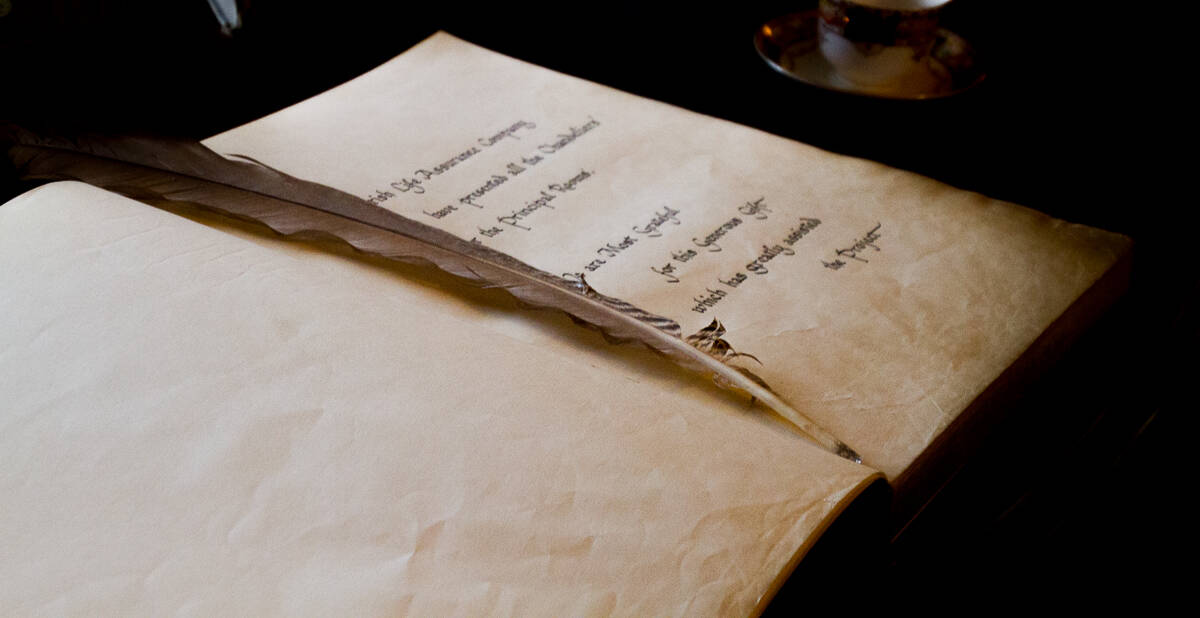 Life Assurance Company
have presented all the Chandeliers'
the Principal Rooms.
are Most Grateful
for this Generous Gift
which has greatly assisted
the Project